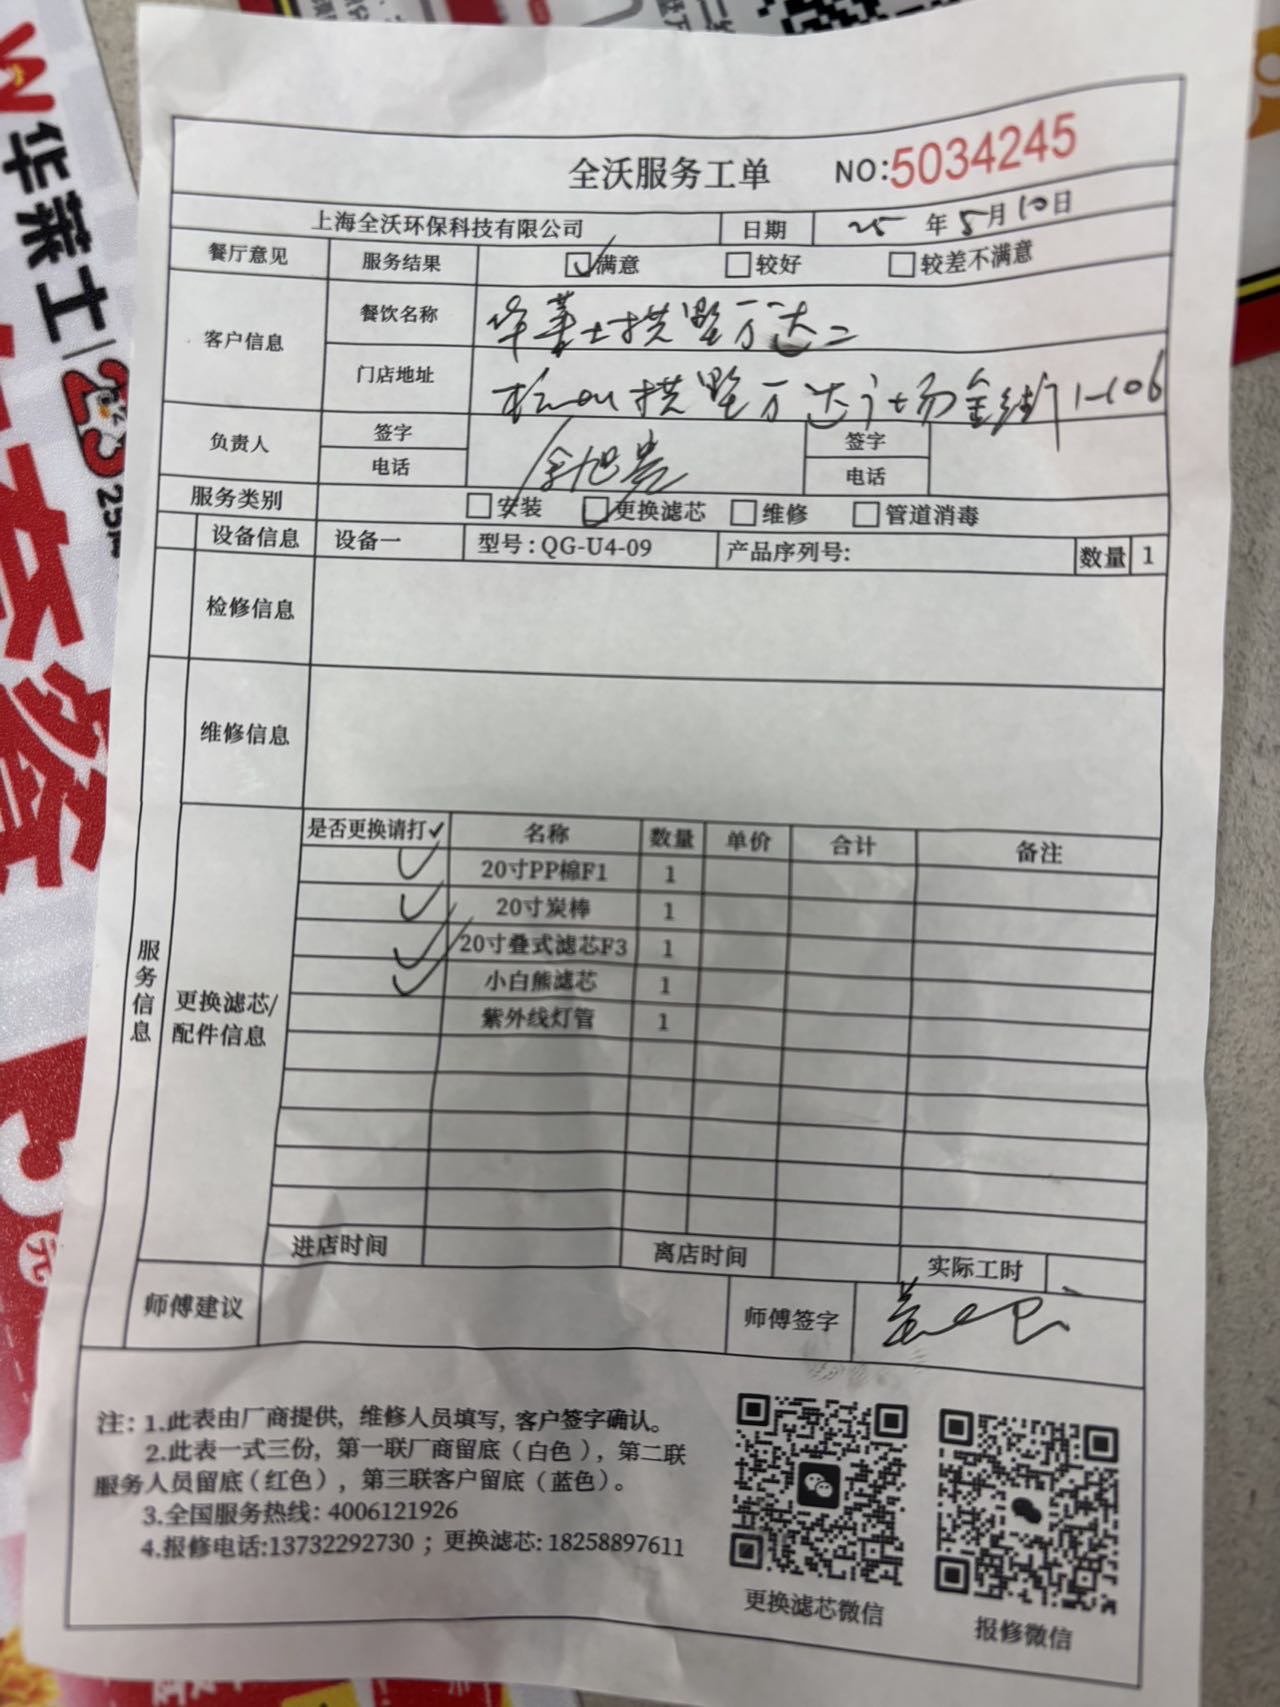 全沃服务工单 NO:5034245
上海全沃环保科技有限公司 日期 25年5月10日
餐厅意见 服务结果 ☑满意 □较好 □较差不满意
客户信息 餐饮名称 华莱士拱墅万达二
门店地址 杭州拱墅万达广场金街1-106
负责人 签字 签字
电话 电话
服务类别 □安装 ☑更换滤芯 □维修 □管道消毒
设备信息 设备一 型号:QG-U4-09 产品序列号: 数量 1
检修信息
维修信息
服务信息
更换滤芯/配件信息
是否更换请打✓ 名称 数量 单价 合计 备注
✓ 20寸PP棉F1 1
✓ 20寸炭棒 1
✓ 20寸叠式滤芯F3 1
✓ 小白熊滤芯 1
紫外线灯管 1
进店时间 离店时间 实际工时
师傅建议 师傅签字
注: 1.此表由厂商提供, 维修人员填写, 客户签字确认。
2.此表一式三份, 第一联厂商留底(白色), 第二联
服务人员留底(红色), 第三联客户留底(蓝色)。
3.全国服务热线: 4006121926
4.报修电话:13732292730 ; 更换滤芯: 18258897611
更换滤芯微信 报修微信
华莱士
25周
元